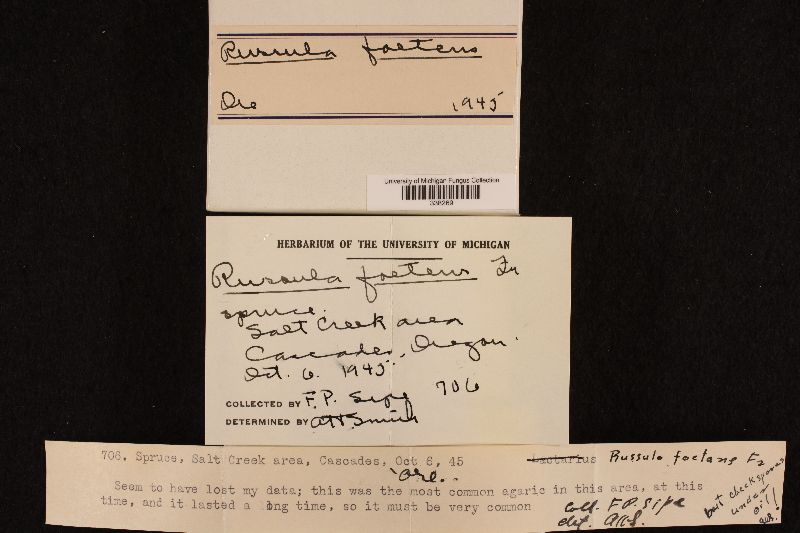 Russula foetens
Ore 1945
University of Michigan Fungus Collection
338269
HERBARIUM OF THE UNIVERSITY OF MICHIGAN
Russula foetens Fr
spruce.
Salt Creek area
Cascades, Oregon.
Oct. 6. 1945
706
COLLECTED BY F.P. Sipe
DETERMINED BY AH Smith
706. Spruce, Salt Creek area, Cascades, Oct 6, 45 Lactarius Russula foetans Fr
Ore.
Seem to have lost my data; this was the most common agaric in this area, at this
time, and it lasted a long time, so it must be very common
Coll. F.P. Sipe
det. AHS.
but check spores
under
oil!
AHS.